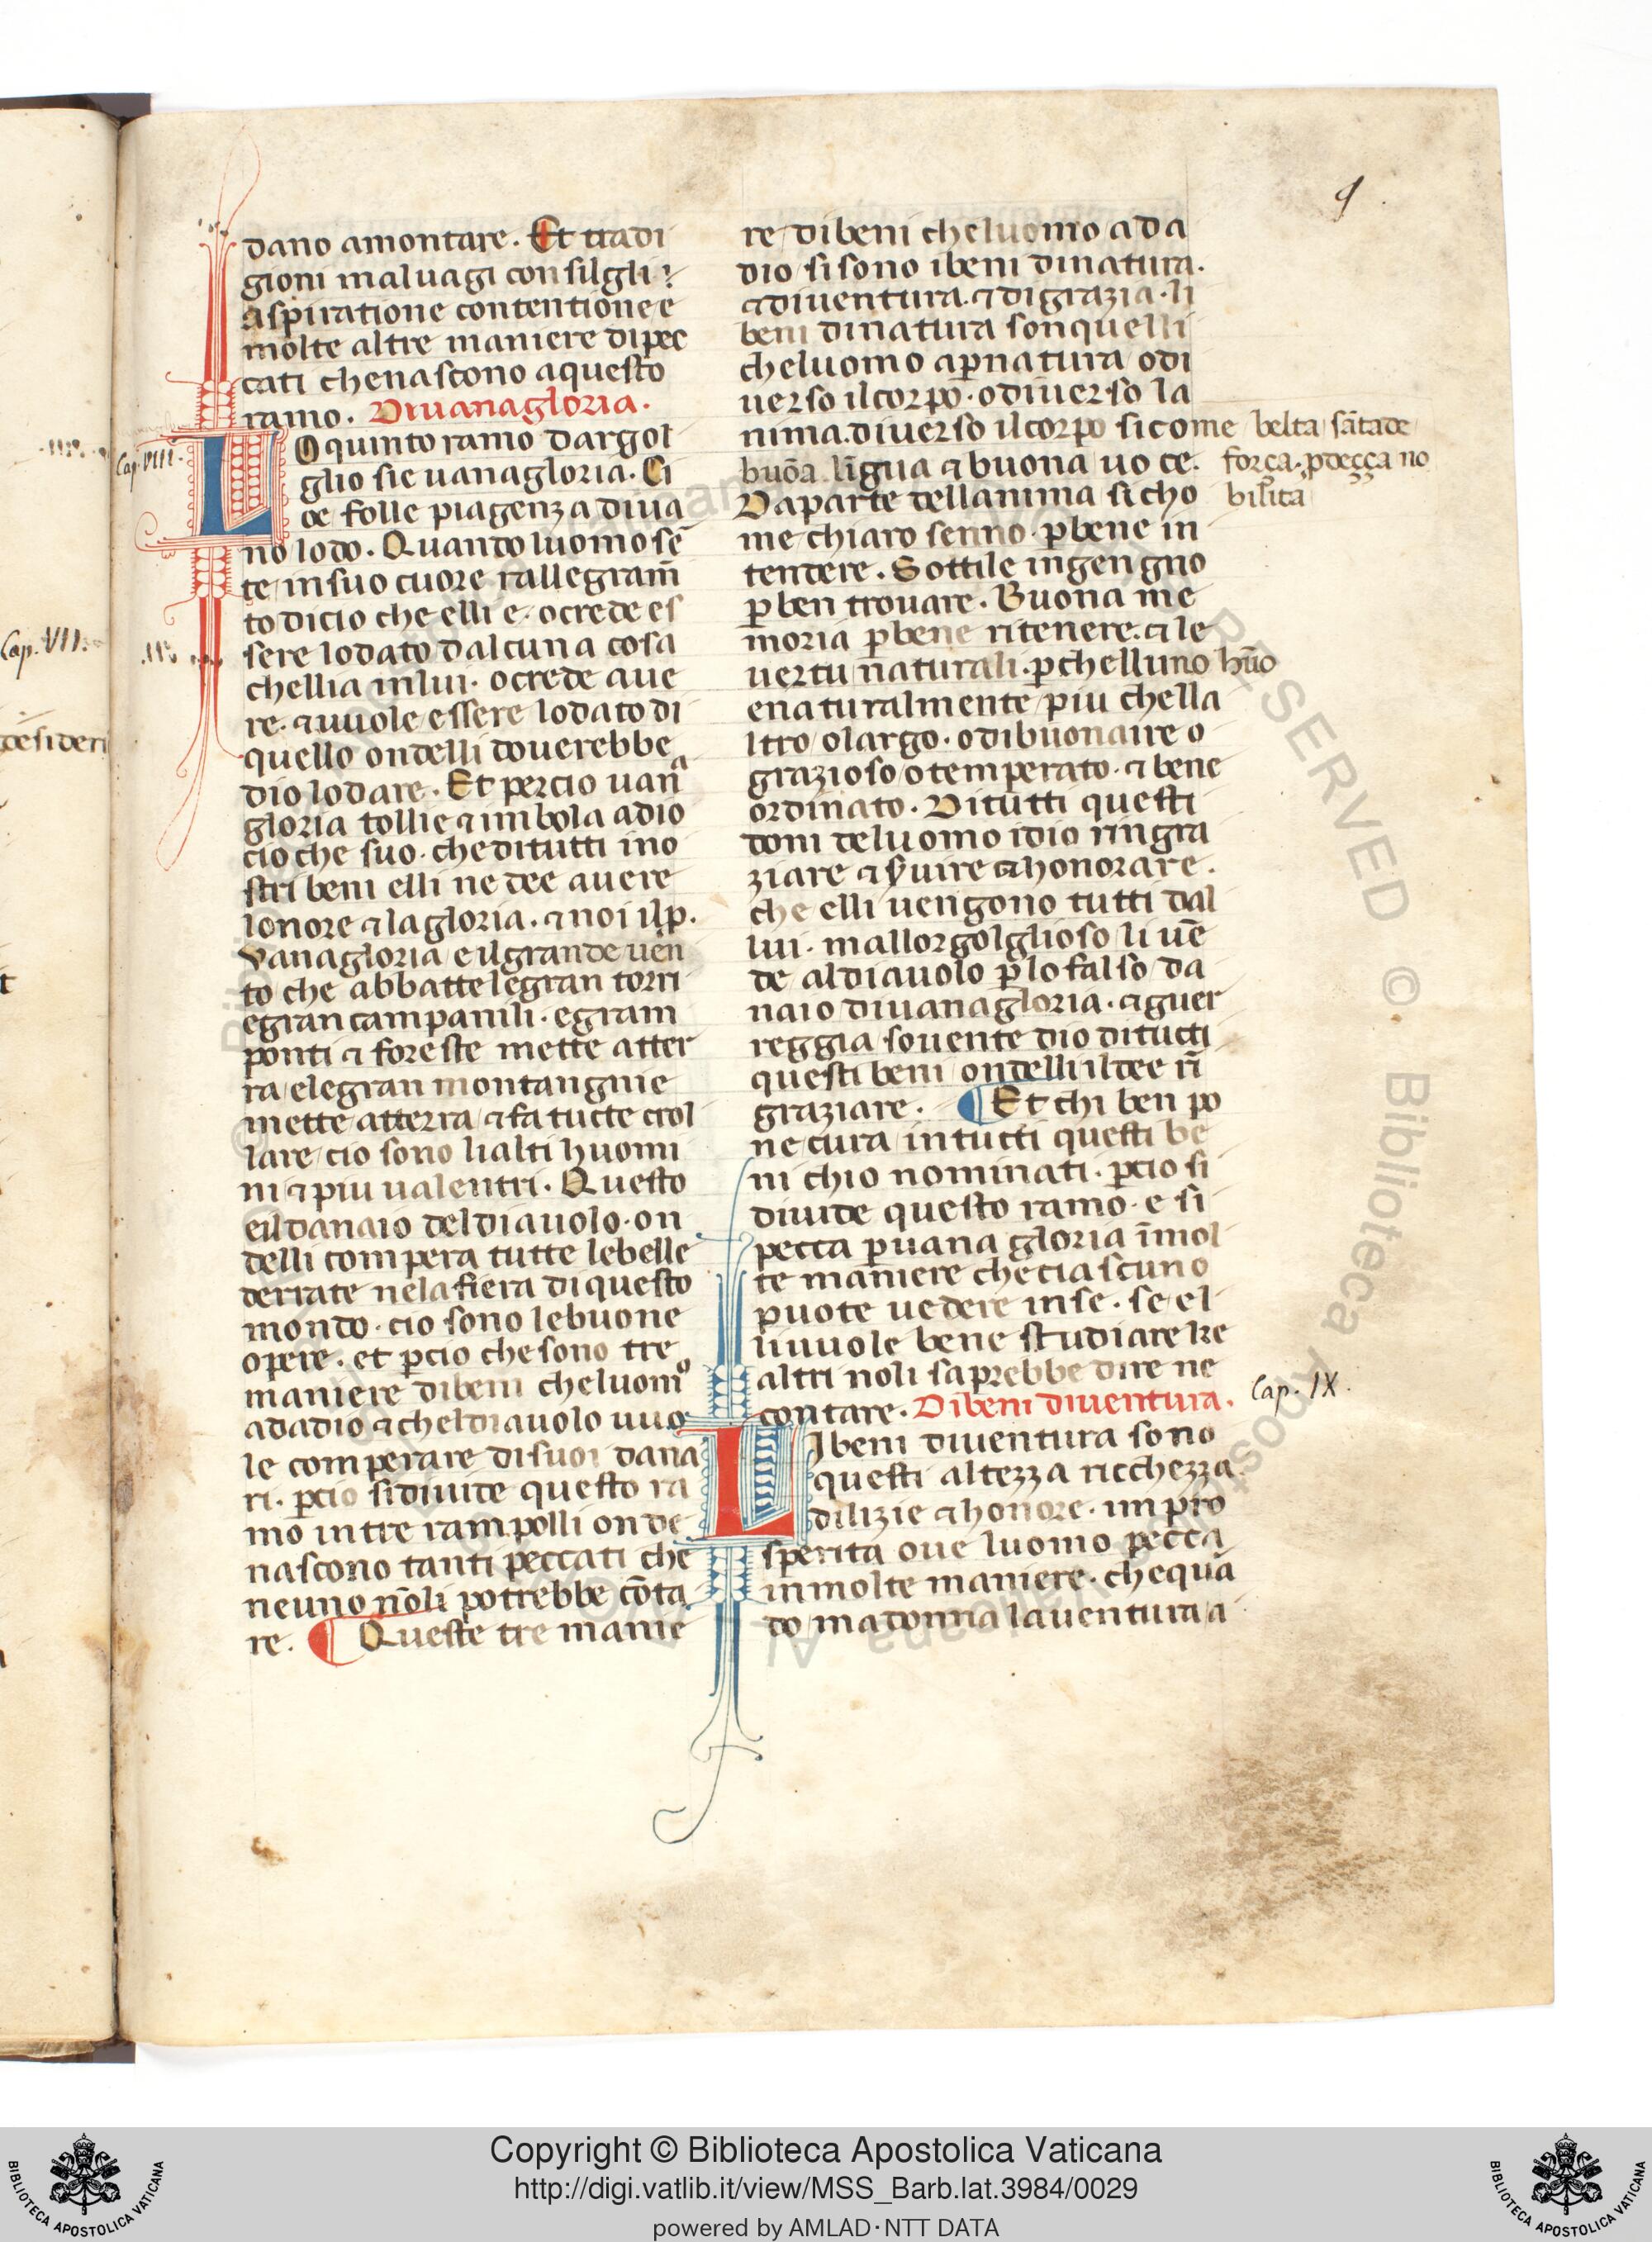 9
dano amontare. Et tradi
gioni maluagi consilgli ⁊
aspiratione contentione e
molte altre maniere dipec
cati chenascono aquesto
ramo. Diuanagloria.
Cap. VIII.
LO quinto ramo dargol
glio sie uanagloria. Ci
oe folle piagenza diua
no lodo. Quando luomo sē
te in suo cuore rallegram̄
to dicio che elli e. o crede es
sere lodato dalcuna cosa
chellia inlui. o crede aue
re. ⁊ uuole essere lodato di
quello ondelli douerebbe
dio lodare. Et percio uanᵃ
gloria tollie ⁊ imbola adio
cio che suo. che ditutti ino
stri beni elli ne dee auere
lonore ⁊ lagloria. ⁊ noi il p.
Vanagloria e il grande uen
to che abbatte legran torri
egran campanili. egram
ponti ⁊ foreste mette atter
ra elegran montangnie
mette atterra ⁊ fa tucte crol
lare cio sono lialti huomi
ni ⁊ piu ualentri. Questo
eil danaio deldiauolo. on
delli compera tutte lebelle
derrate nela fiera di questo
mondo. cio sono lebuone
opere. et ꝑcio che sono tre
maniere dibeni cheluomº
adadio ⁊ cheldiauolo uuo
le comperare disuoi dana
ri. ꝑcio sidiuide questo ra
mo intre rampolli onde
nascono tanti peccati che
neuno nōli potrebbe cōta
re. ¶ Queste tre manie
re dibeni cheluomo ada
dio si sono ibeni dinatura.
⁊ diuentura. ⁊ digrazia. li
beni dinatura son quelli
cheluomo a ꝑ natura o di
uerso ilcorpo. o diuerso la
nima. diuerso il corpo si come belta sātade
buōa līgua ⁊ buona uoce. força. ꝓdeçça no
Daparte dellanima si cho bilita
me chiaro senno ꝑ bene in
tendere. Sottile ingengno
ꝑ ben trouare. Buona me
moria ꝑ bene ritenere. ⁊ le
uertu naturali. ꝑ chelluno huō
e naturalmente piu chella
ltro o largo. o dibuonaire o
grazioso o temperato. ⁊ bene
ordinato. Ditutti questi
doni deluomo idio ringra
ziare ⁊ ẜuire ⁊ honorare.
che elli uengono tutti dal
lui. mallorgolglioso li uē
de aldiauolo ꝑ lo falso da
naio diuanagloria. ⁊ guer
reggia souente dio ditucti
questi beni ondelli il dee rī
graziare. ¶ Et chi ben po
ne cura intutti questi be
ni chio nominati. ꝑcio si
diuide questo ramo. e si
pecca ꝑ uana gloria īmol
te maniere che ciascuno
puote uedere inse. se el
li uuole bene studiare ke
altri noli saprebbe dire ne
contare. Dibeni diuentura.
Cap. IX.
LI beni diuentura sono
questi altezza ricchezza
dilizie ⁊ honore. im pro
sperita oue luomo pecca
inmolte maniere. che quā
do madonna lauentura a
Cap. VII.
desideri
Copyright © Biblioteca Apostolica Vaticana
http://digi.vatlib.it/view/MSS_Barb.lat.3984/0029
powered by AMLAD·NTT DATA
BIBLIOTECA APOSTOLICA VATICANA
BIBLIOTECA APOSTOLICA VATICANA